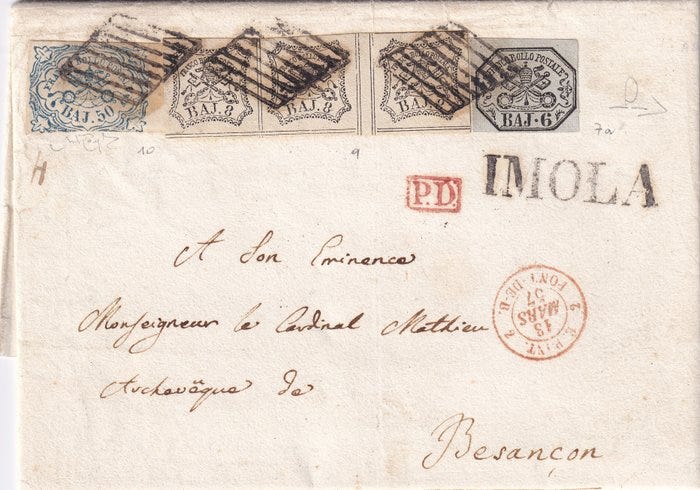 BAJ. 50
BAJ. 8
BAJ. 8
BAJ. 8
BOLLO POSTALE
BAJ·6
10
9
7a
P.D.
IMOLA
A Son Eminence
Monseigneur le Cardinal Mathieu
Archevêque de
Besançon
2 E. PIVT. 2
13
MARS
57
PONT-DE-B.